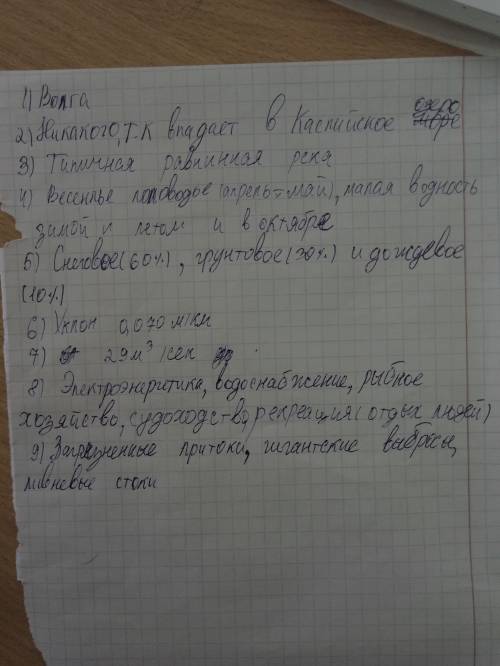 1) Волга
2) Никакого, т.к впадает в Каспийское озеро
3) Типичная равнинная река
4) Весенние половодое (апрель-май), малая водность
зимой и летом и в октябре
5) Снеговое (60%), грунтовое (30%) и дождевое
(10%)
6) Уклон 0,070 м/км
7) 29м³/сек
8) Электроэнергетика, водоснабжение, рыбное
хозяйство, судоходство, рекреация (отдых людей)
9) Загрязненные притоки, гигантские выбросы,
ливневые стоки